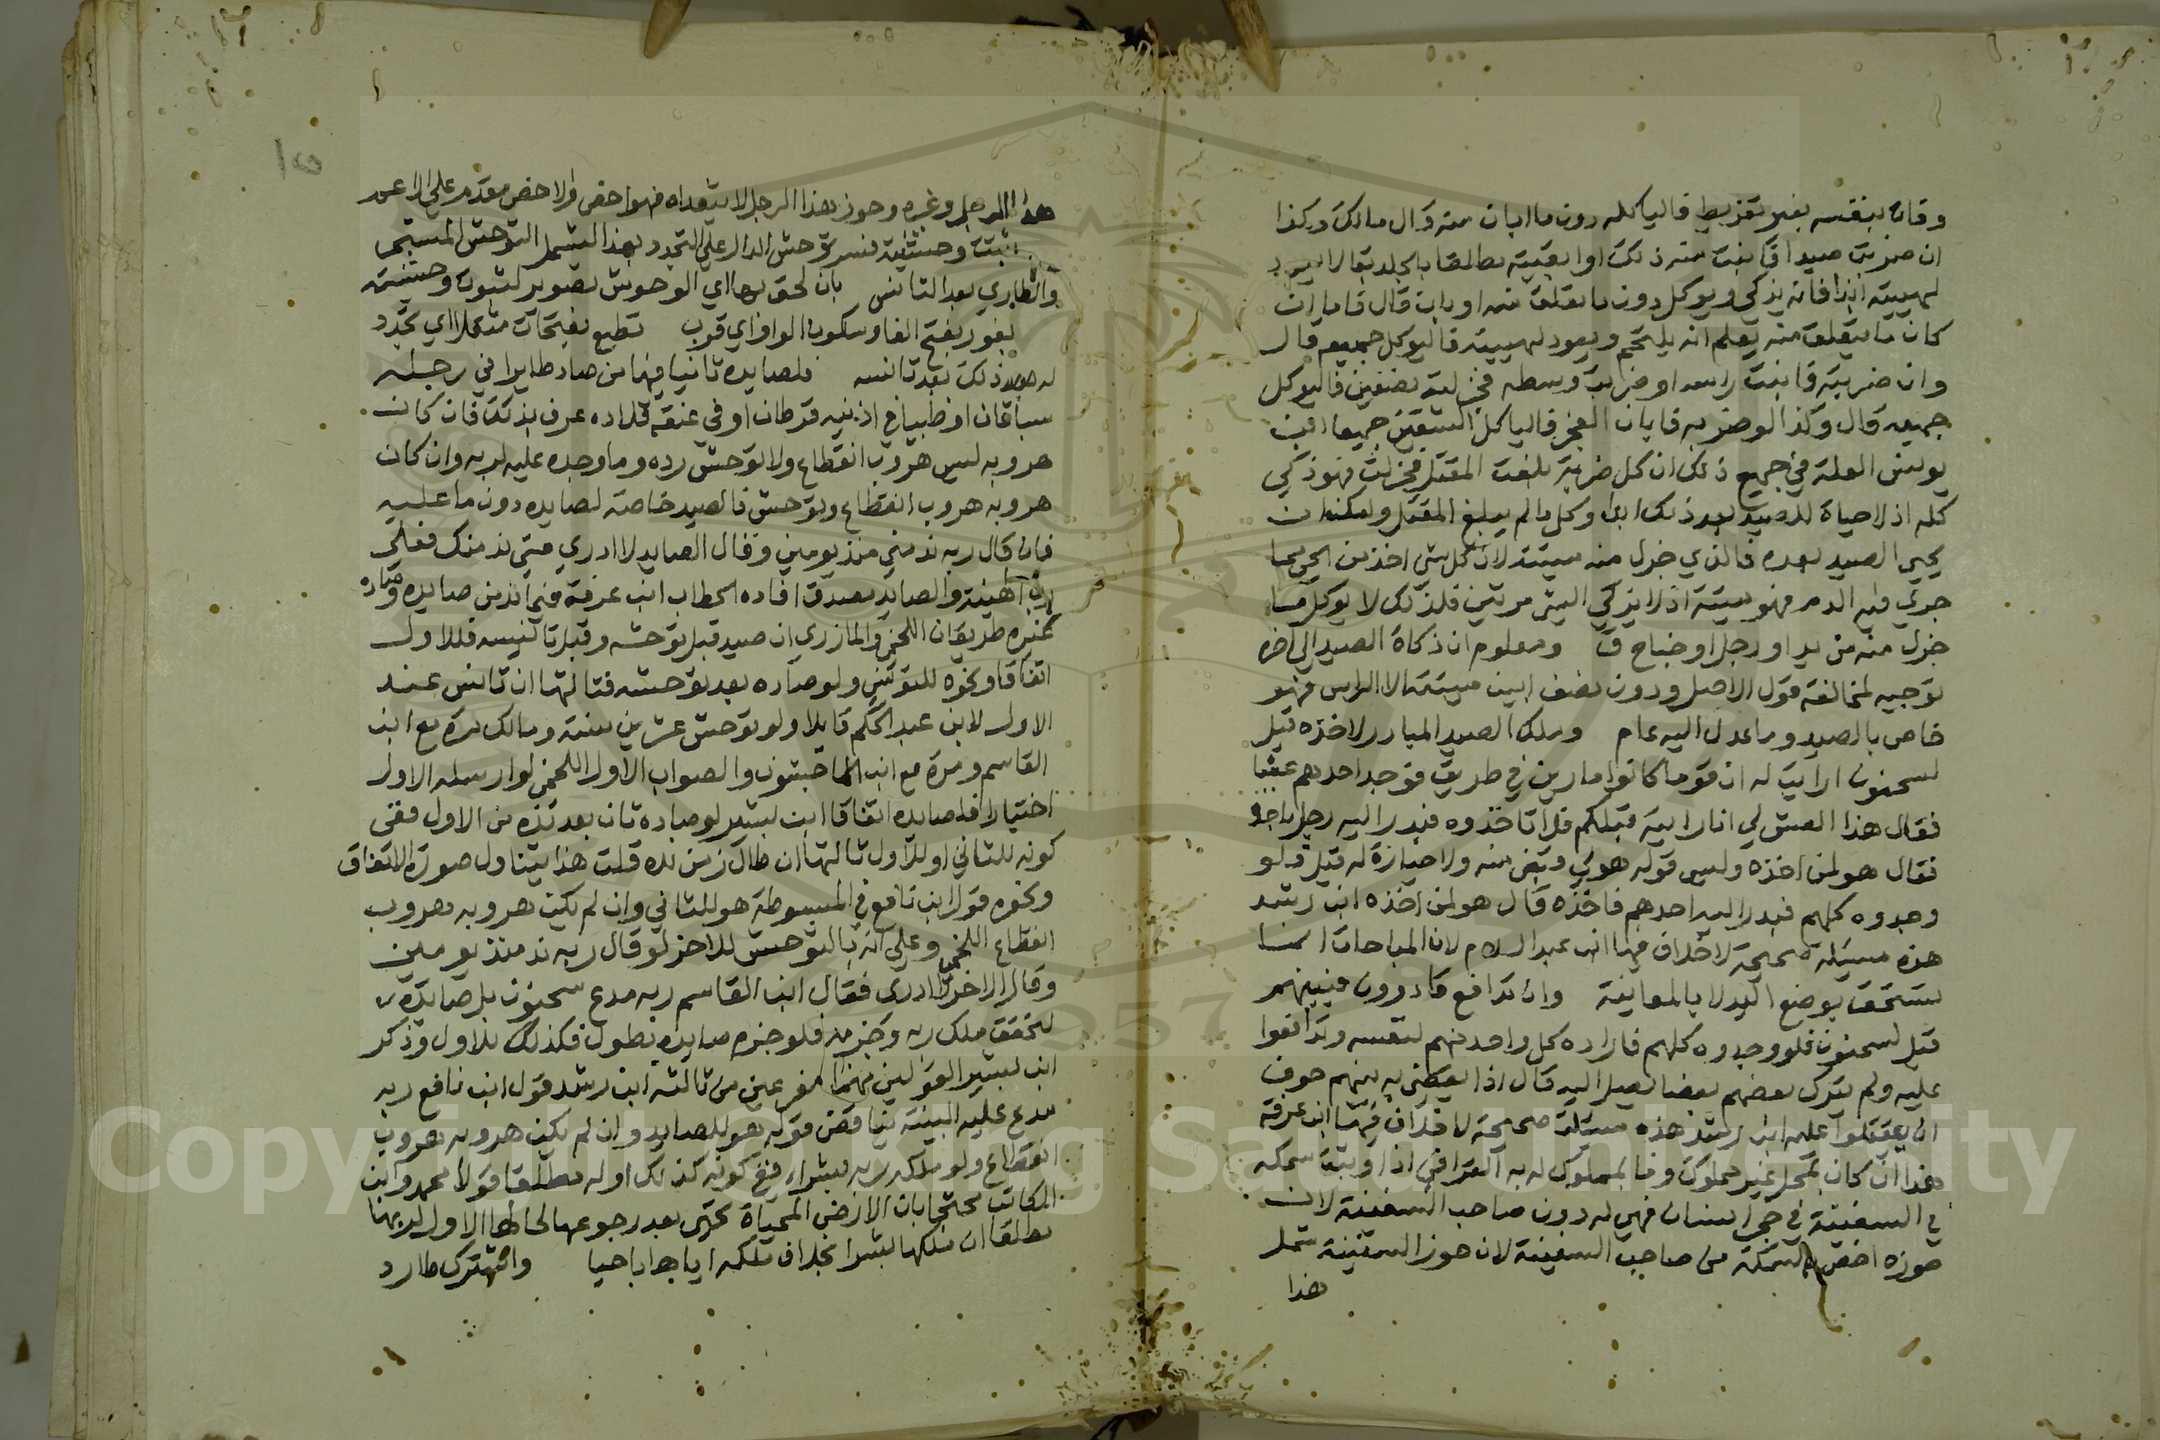 وفات بنفسه بغير تفريط فلياكله دون ما ابان منه قال مالك وكذا
ان ضربت صيدا فابنت منه ذلك او ابقيته معلقا بالجلد بقا لا يعود
لهييته ابدا فانه يذكي ويوكل دون ما تعلق منه او بان قال فاما ان
كان ما يتعلق منه يعلم انه يلتحم ويعود لهييته فاليوكل جميعه قال
وان ضربته فابنت راسه او ضربت وسطه فجزلته نصفين فاليوكل
جميعه قال وكذا لو ضربه فابان العجز فاليا كل الشقين جميعا ابن
يونس العلة في جميع ذلك ان كل ضربة بلغت المقتل فجزلت فهو ذكي
كله اذ لا حياة للصيد بعد ذلك ابدا وكل ما لم يبلغ المقتل ويمكن ان
يحيى الصيد بعده فالذي جزل منه ميتة لان كل شي اخذ من الحي مما
جري فيه الدم فهو ميتة اذ لا يذكي الشي مرتين فلذلك لا يوكل ما
جزل منه من يد او رجل او جناح ق ومعلوم ان ذكاة الصيد الي اخره
توجيه لمخالفة قول الاصل ودون نصف ابين ميتة الا الراس فهو
خاص بالصيد وما عدل اليه عام وملك الصيد المبادر لاخذه قيل
لسحنون ارايت له ان قوما كانوا مارين في طريق فوجد احدهم عشا
فقال هذا العش لي انا رايته قبلكم فلا تاخذوه فبدر اليه رجل فاخذه
فقال هو لمن اخذه وليس قوله هو لي وقبض منه ولا حيازة له قيل فلو
وجدوه كلهم فبدر اليه احدهم فاخذه قال هو لمن اخذه ابن رشد
هذه مسيلة صحيحة لا خلاف فيها ابن عبد السلام لان المباحات انما
تستحق بوضع اليد لا بالمعاينة وان تدافع قادرون فبينهم
قيل لسحنون فلو وجدوه كلهم فاراده كل واحد منهم لنفسه وتدافعوا
عليه ولم يترك بعضهم بعضا يصل اليه قال اذا يقضي به بينهم خوف
ان يقتتلوا عليه ابن رشد هذه مسيلة صحيحة لا خلاف فيها ابن عرفة
هذا ان كان بمحل غير مملوك وفا لمملوك له به القرافي اذا وثبت سمكه
في السفينة في حجر انسان فهي له دون صاحب السفينة لان
حوزه اخص بالسمكة من صاحب السفينة لان حوز السفينة شمل
هذا
هذا الرجل وغيره وحوز هذا الرجل لا يتعداه فهو اخص والاخص مقدم علي الاعم
وحينئذ فسر توحش الدال علي التجدد بهذا ليشمل التوحش المستجد
والطاري بعد التانس بان لحق بها اي الوحوش تصوير لثبوت وحشيته
بغور بفتح الفا وسكون الواو اي قرب تطبع بفتحات مثقلا اي تجدد
له ذلك بعد تانسه فلصايده ثانيا فيها من صاد طايرا في رجليه
سباقان او ظبيا في اذنيه قرطان او في عنقه قلاده عرف بذلك فان كان
هروبه ليس هروب انقطاع ولا توحش رده وما وجده عليه لربه وان كان
هروبه هروب انقطاع وتوحش فالصيد خاصة لصايده دون ما عليه
فان قال ربه ند مني منذ يومين وقال الصايد لا ادري متي ند منك فعلي
ربه البينة والصايد مصدق افاده الحطاب ابن عرفة فيما ند من صايده وصاده
غيره طريقان اللخمي والمازري ان صيد قبل توحشه وقبل تانيسه فللاول
اتفاقا ونحوه للتونسي ولو صاده بعد توحشه فثالثها ان تانس عند
الاول لابن عبد الحكم قايلا ولو توحش عشرين سنة ومالك مرة مع ابن
القاسم ومرة مع ابن الماجشون والصواب الاول اللخمي لو ارسله الاول
اختيارا فلصايده اتفاقا ابن بشير لو صاده ثان بعد نده من الاول ففي
كونه للثاني او للاول ثالثها ان طال زمن نده قلت هذا يتناول صورة الاتفاق
ونحوه قول ابن نافع في المبسوطة هو للثاني وان لم يكن هروبه هروب
انقطاع اللخمي وعلي انه بالتوحش للاخذ لو قال ربه ند منذ يومين
وقال الاخر لا ادري فقال ابن القاسم ربه مدع سحنون بل صايده
لتحقق ملك ربه وجزمه فلو جزم صايده بطول فكذلك للاول وذكر
ابن بشير القولين منهما مفرعين من ثالثه ابن رشد قول ابن نافع ربه
مدع عليه البينة يناقض قوله هو للصايد وان لم يكن هروبه هروب
انقطاع ولو ملكه ربه بشراء ففي كونه كذلك او له مطلقا قولا محمد وابن
الكاتب محتجا بان الارض المحياة تحيى بعد رجوعها لحالها الاول لربها
مطلقا ان ملكها بشرا بخلاف ملكه اياها باحيا واشترك طارد